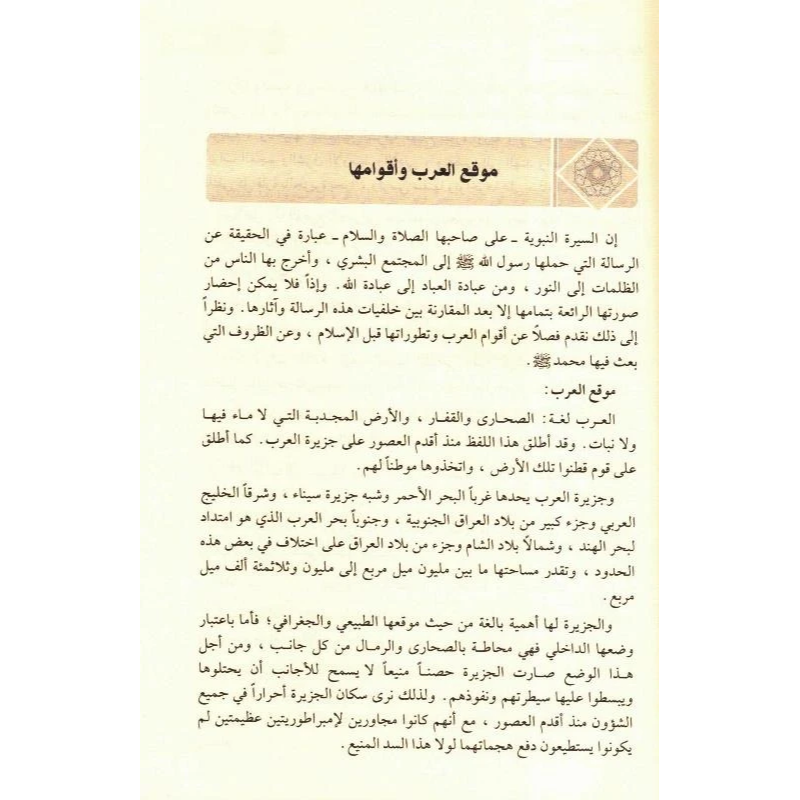 موقع العرب وأقوامها
إن السيرة النبوية ـ على صاحبها الصلاة والسلام ـ عبارة في الحقيقة عن
الرسالة التي حملها رسول الله ﷺ إلى المجتمع البشري ، وأخرج بها الناس من
الظلمات إلى النور ، ومن عبادة العباد إلى عبادة الله. وإذاً فلا يمكن إحضار
صورتها الرائعة بتمامها إلا بعد المقارنة بين خلفيات هذه الرسالة وآثارها. ونظراً
إلى ذلك نقدم فصلاً عن أقوام العرب وتطوراتها قبل الإسلام ، وعن الظروف التي
بعث فيها محمد ﷺ .
موقع العرب:
العرب لغة: الصحارى والقفار ، والأرض المجدبة التي لا ماء فيها
ولا نبات. وقد أطلق هذا اللفظ منذ أقدم العصور على جزيرة العرب. كما أطلق
على قوم قطنوا تلك الأرض ، واتخذوها موطناً لهم.
وجزيرة العرب يحدها غرباً البحر الأحمر وشبه جزيرة سيناء ، وشرقاً الخليج
العربي وجزء كبير من بلاد العراق الجنوبية ، وجنوباً بحر العرب الذي هو امتداد
لبحر الهند ، وشمالاً بلاد الشام وجزء من بلاد العراق على اختلاف في بعض هذه
الحدود ، وتقدر مساحتها ما بين مليون ميل مربع إلى مليون وثلاثمئة ألف ميل
مربع .
والجزيرة لها أهمية بالغة من حيث موقعها الطبيعي والجغرافي؛ فأما باعتبار
وضعها الداخلي فهي محاطة بالصحارى والرمال من كل جانب ، ومن أجل
هذا الوضع صارت الجزيرة حصناً منيعاً لا يسمح للأجانب أن يحتلوها
ويبسطوا عليها سيطرتهم ونفوذهم. ولذلك نرى سكان الجزيرة أحراراً في جميع
الشؤون منذ أقدم العصور ، مع أنهم كانوا مجاورين لإمبراطوريتين عظيمتين لم
يكونوا يستطيعون دفع هجماتهما لولا هذا السد المنيع .